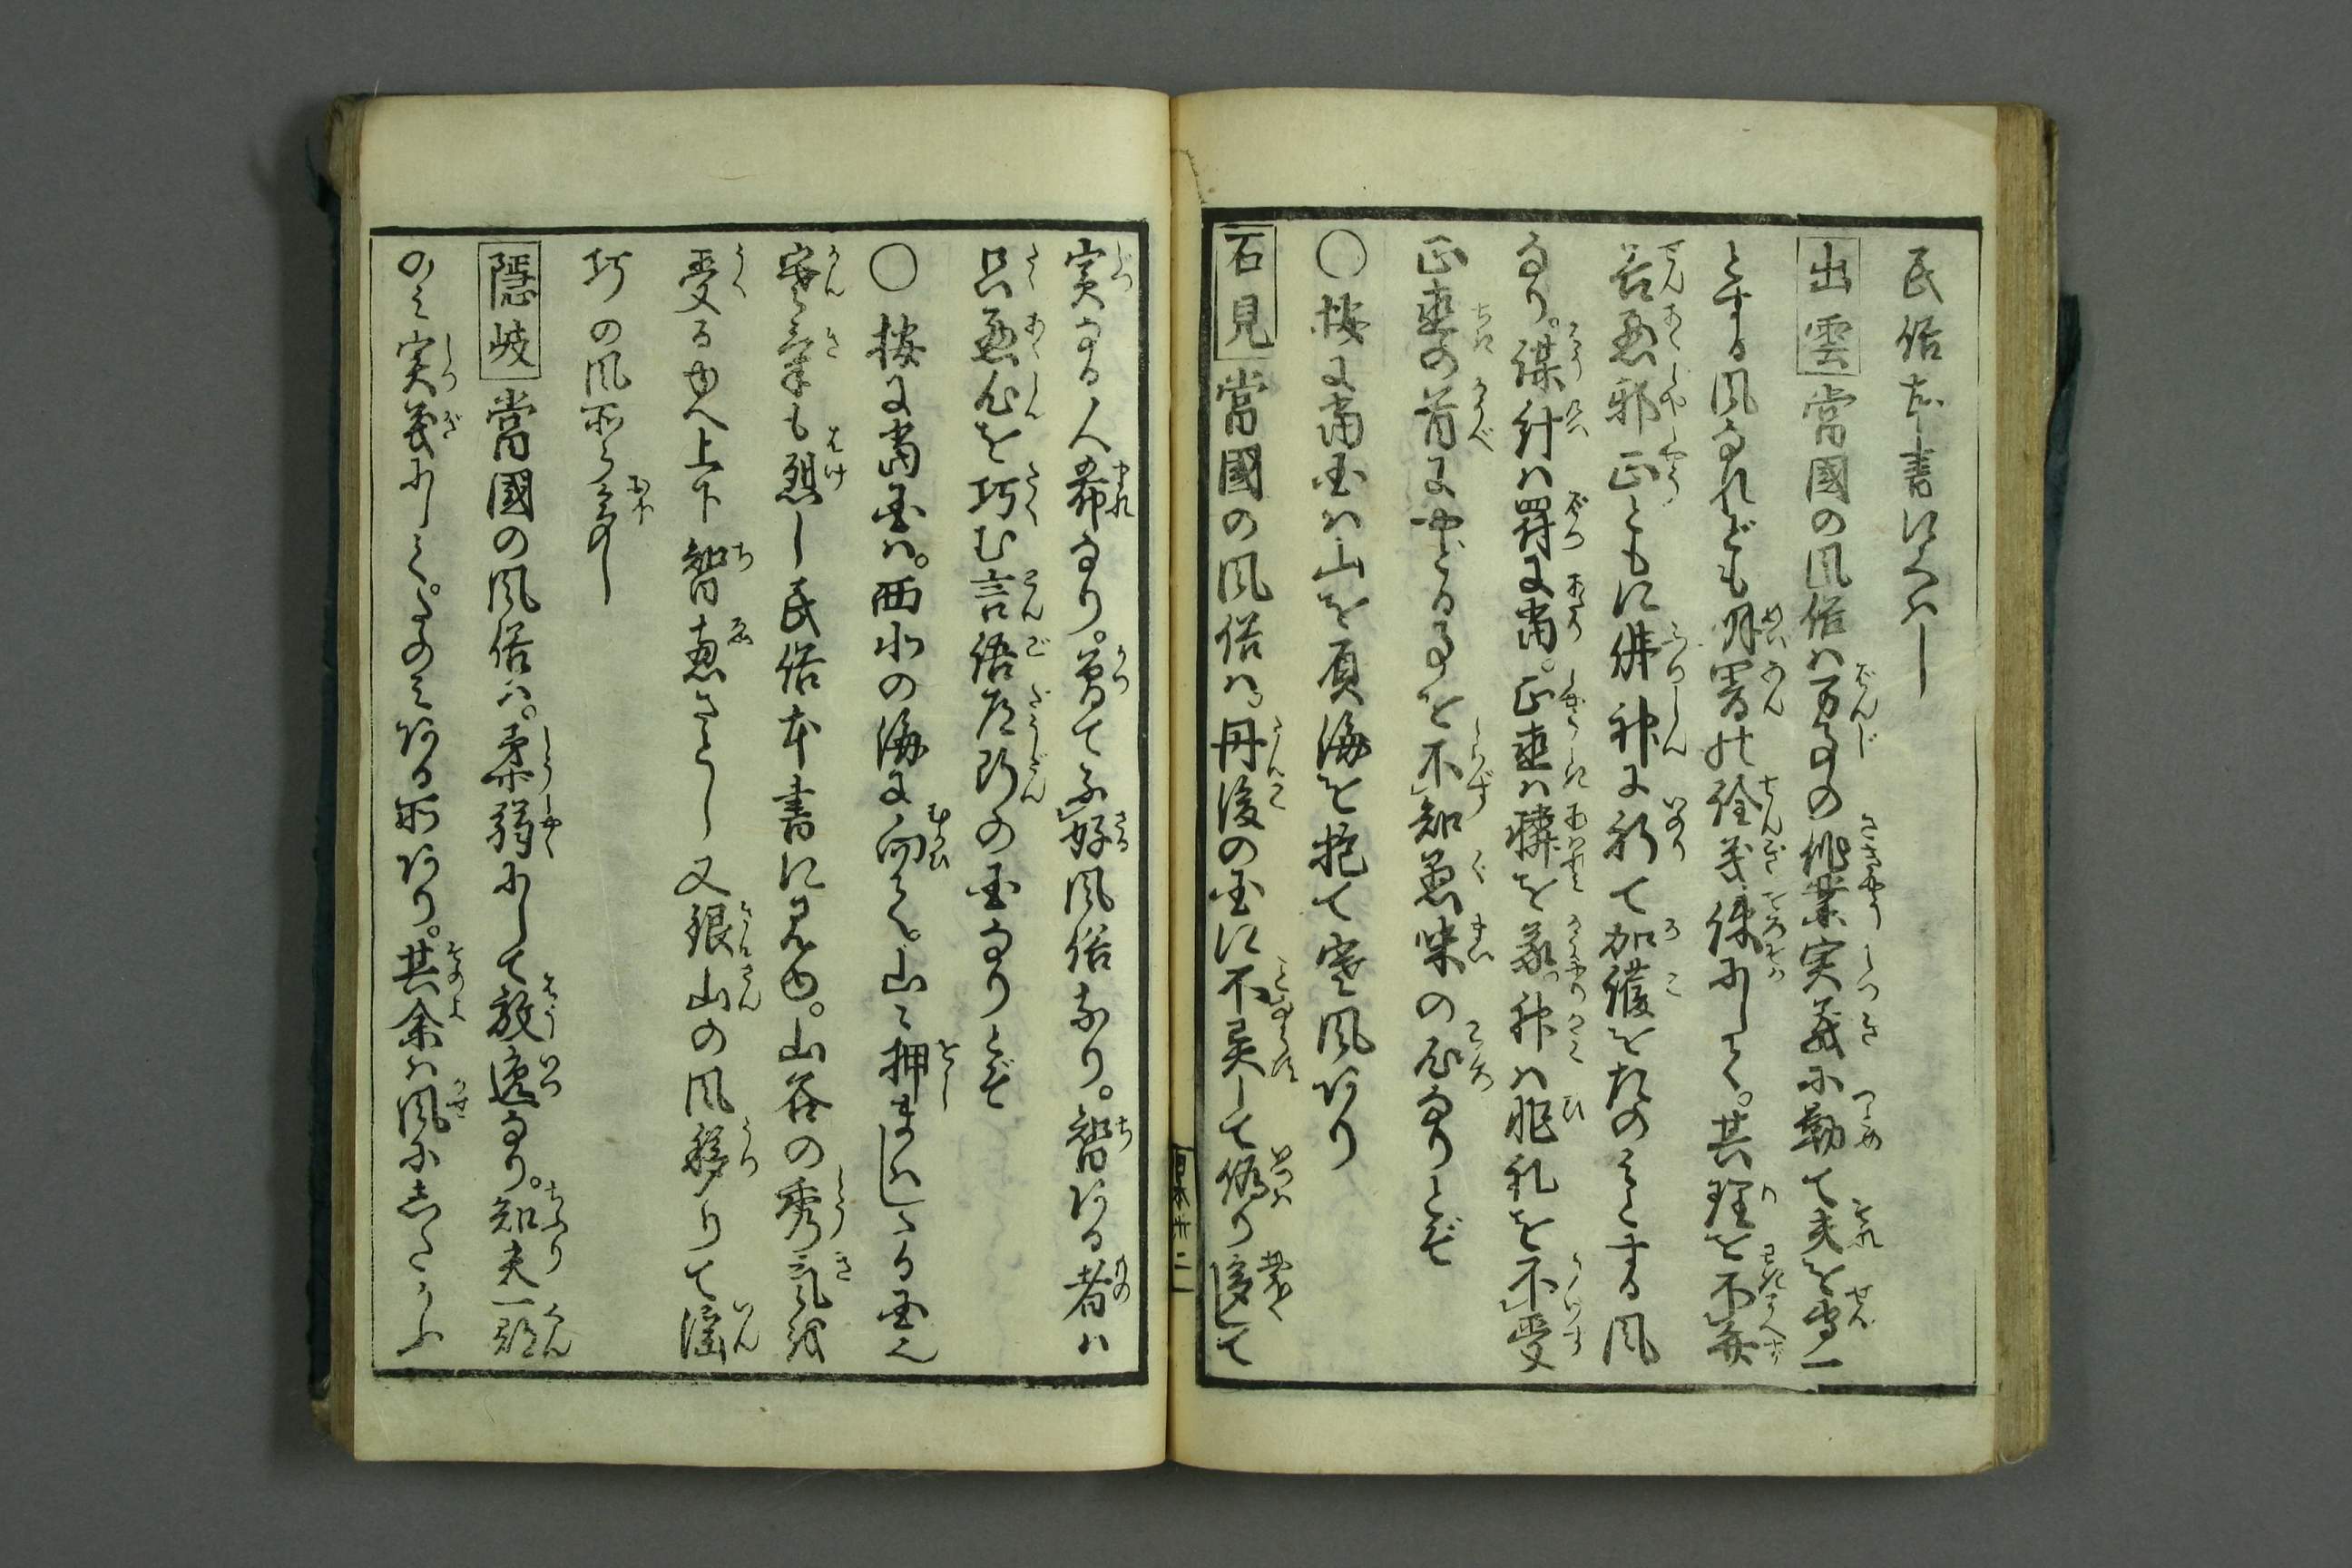 民俗本書にくハし
出雲 當國の風俗ハ万事の作業実義に勤て夫を専一
とする風なれども明署の詮義疎にして。其理を不弁
善悪邪正ともに佛神に祈て加護をたのミとする風
なり。謀計ハ罸に當。正直ハ憐を蒙。神ハ非礼を不受
正直の首にやどる事を不知愚昧の心なりとぞ
〇按に當国ハ山を負海を抱て寒風あり
石見 當國の風俗ハ。丹後の国に不異して偽り多して
実なる人希なり。曽て不好風俗なり。智ある者ハ
只悪心を巧む言語道断の国なりとぞ
〇按に當国ハ。西北の海に向て。山ミ押まハしたる国也
寒気も烈し民俗本書に見ゆ。山谷の秀気を
受るゆへ上下智恵さとし又銀山の風移りて淫
巧の風所ミ多し
隠岐 當國の風俗ハ。柔弱にして放逸なり。知夫一郡
のミ実義にして。たのミある所あり。其余ハ風にしたかふ